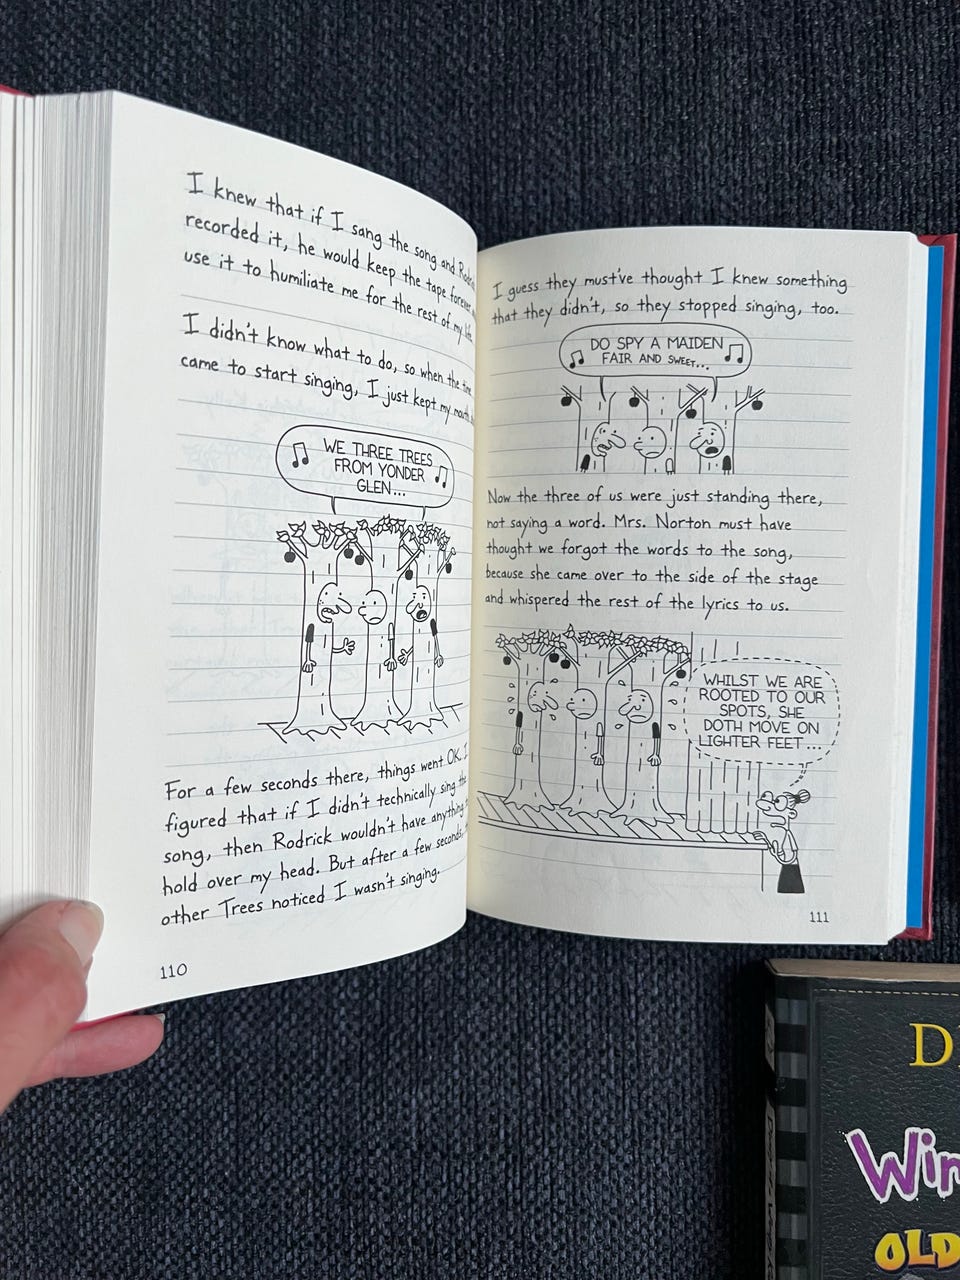 I knew that if I sang the song and
recorded it, he would keep the tape forever
use it to humiliate me for the rest of my life.
I didn't know what to do, so when the time
came to start singing, I just kept my mouth
WE THREE TREES
FROM YONDER
GLEN...
For a few seconds there, things went OK. I
figured that if I didn't technically sing the
song, then Rodrick wouldn't have anything
hold over my head. But after a few seconds,
other Trees noticed I wasn't singing.
110
I guess they must've thought I knew something
that they didn't, so they stopped singing, too.
DO SPY A MAIDEN
FAIR AND SWEET...
Now the three of us were just standing there,
not saying a word. Mrs. Norton must have
thought we forgot the words to the song,
because she came over to the side of the stage
and whispered the rest of the lyrics to us.
WHILST WE ARE
ROOTED TO OUR
SPOTS, SHE
DOTH MOVE ON
LIGHTER FEET...
111
D
Win
OLD